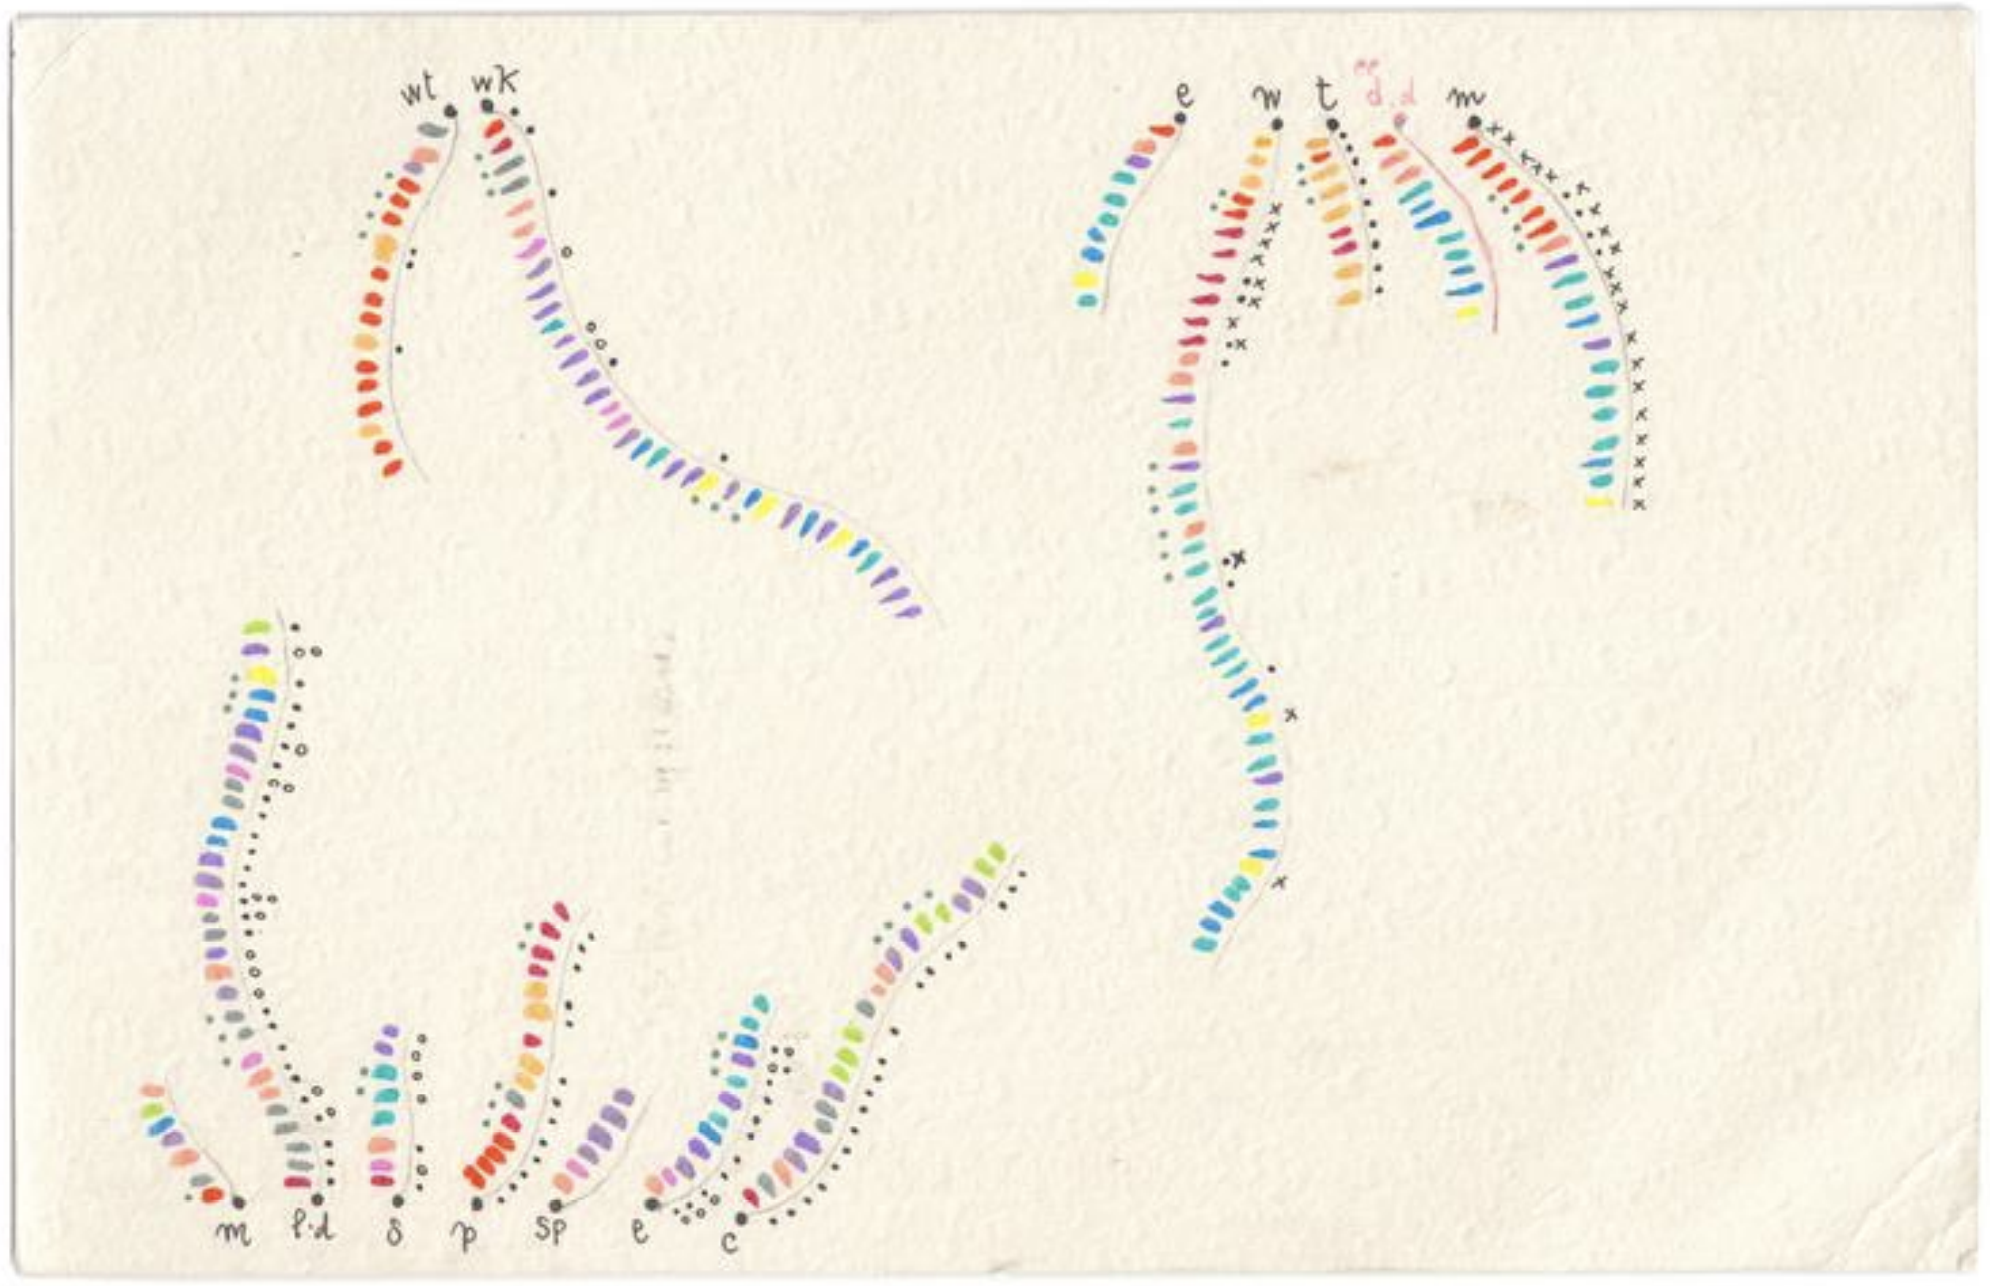 wt wk
e w t d.d m
m l.d s p sp e c